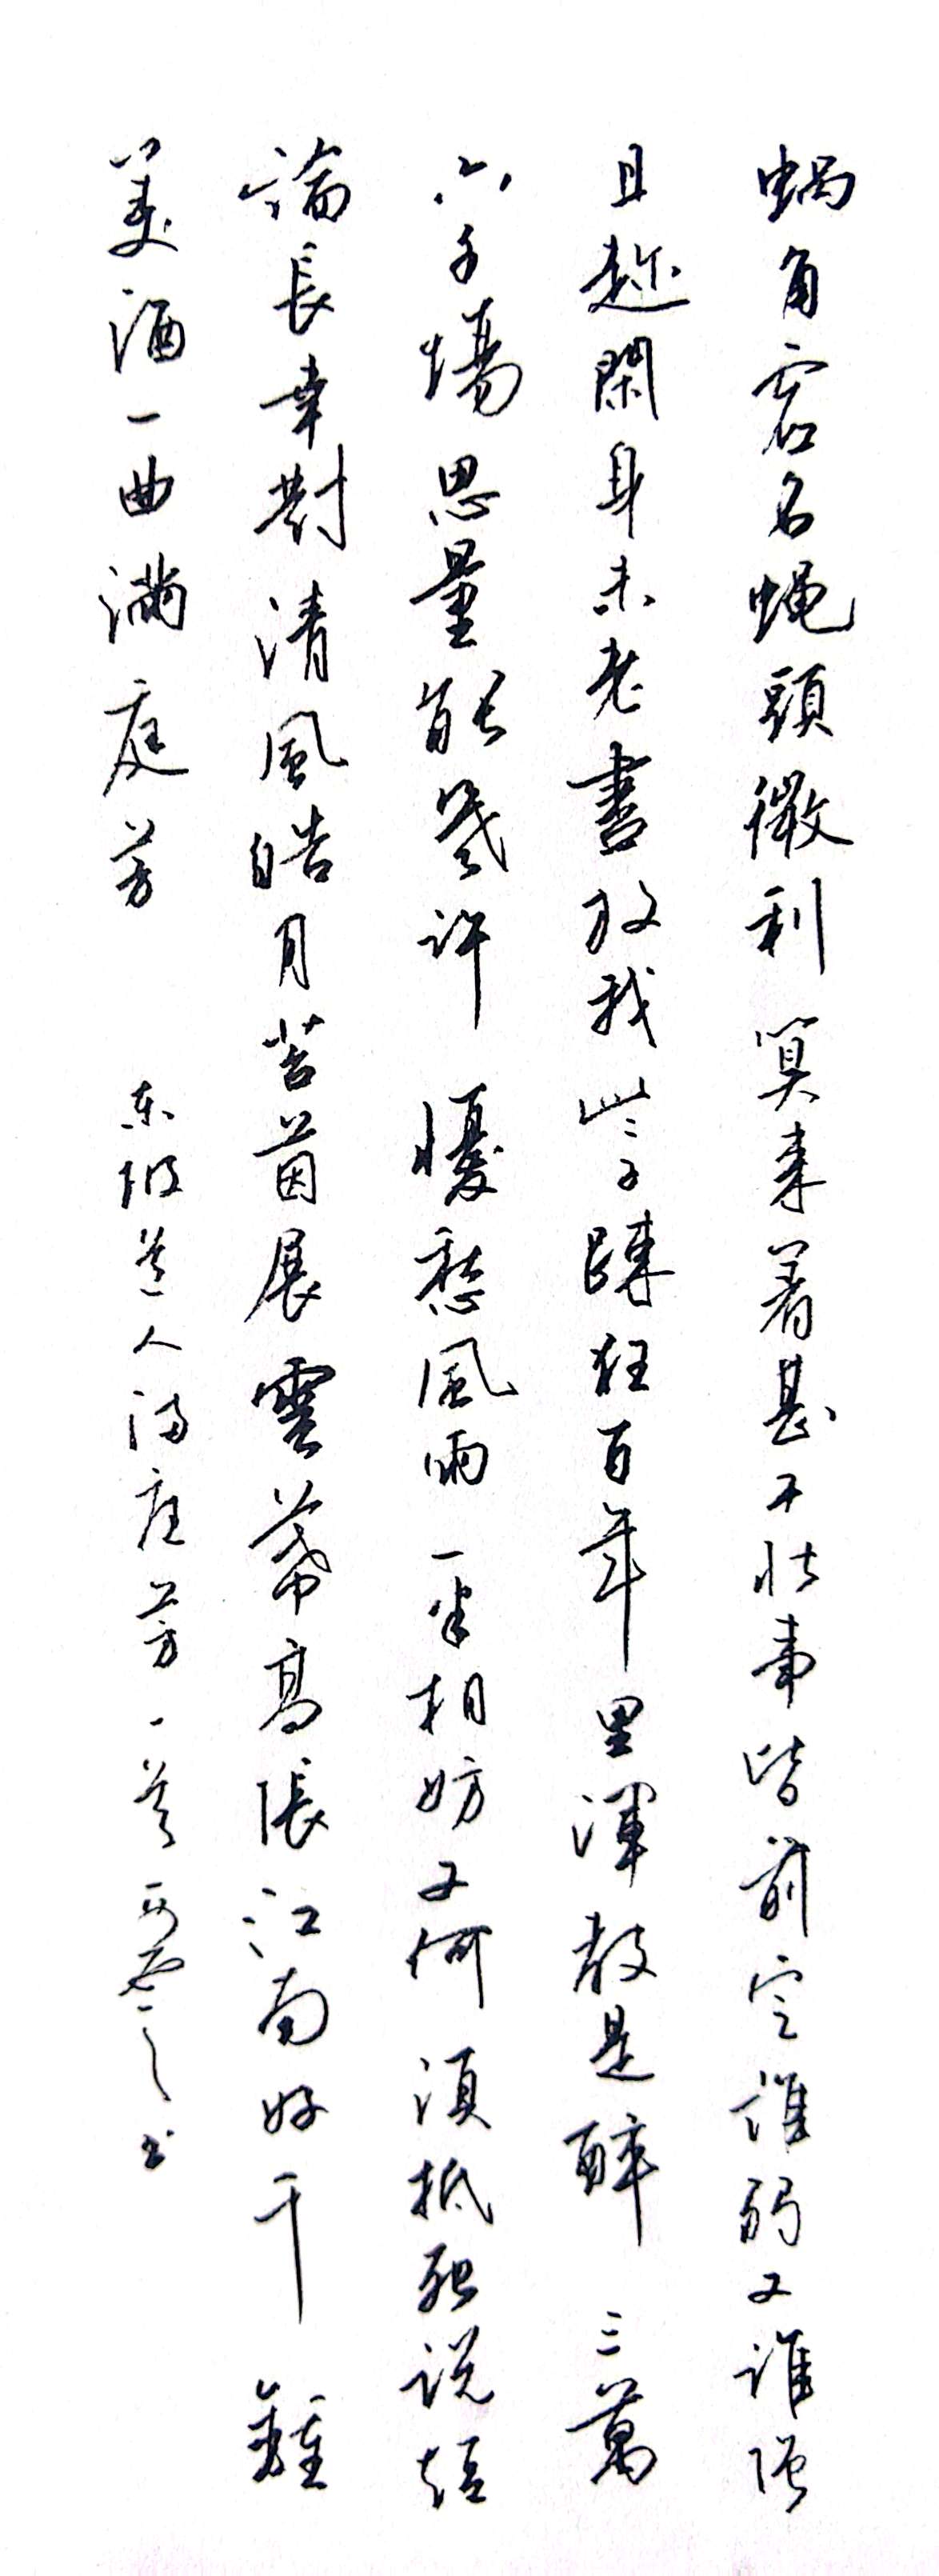 蜗角虚名蝇頭微利算来着甚干忙事皆前定誰弱又誰强
且趁閑身未老盡放我些子踈狂百年里渾教是醉三萬
六千場思量能幾許懮愁風雨一半相妨又何須抵死説短
論長幸對清風皓月苔茵展雲幕高張江南好千鍾
美酒一曲滿庭芳 东坡道人满庭芳一首 书